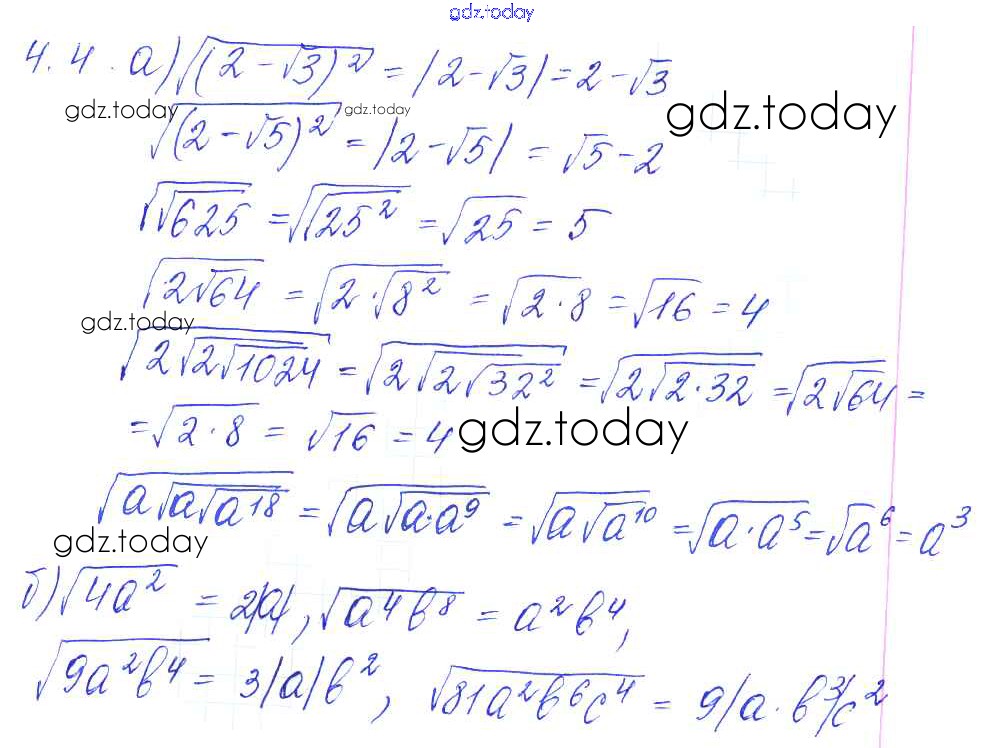 gdz.today
4.4. а) √((2-√3)²) = |2-√3| = 2-√3
gdz.today gdz.today gdz.today
√((2-√5)²) = |2-√5| = √5-2
√(√625) = √(√(25²)) = √25 = 5
√(2√64) = √(2·√(8²)) = √(2·8) = √16 = 4
gdz.today
√(2√(2√1024)) = √(2√(2√(32²))) = √(2√(2·32)) = √(2√64) =
= √(2·8) = √16 = 4 gdz.today
√(a√(a√(a¹⁸))) = √(a√(a·a⁹)) = √(a√(a¹⁰)) = √(a·a⁵) = √a⁶ = a³
gdz.today
б) √(4a²) = 2|a|, √(a⁴b⁸) = a²b⁴,
√(9a²b⁴) = 3|a|b², √(81a²b⁶c⁴) = 9|a·b³|c²